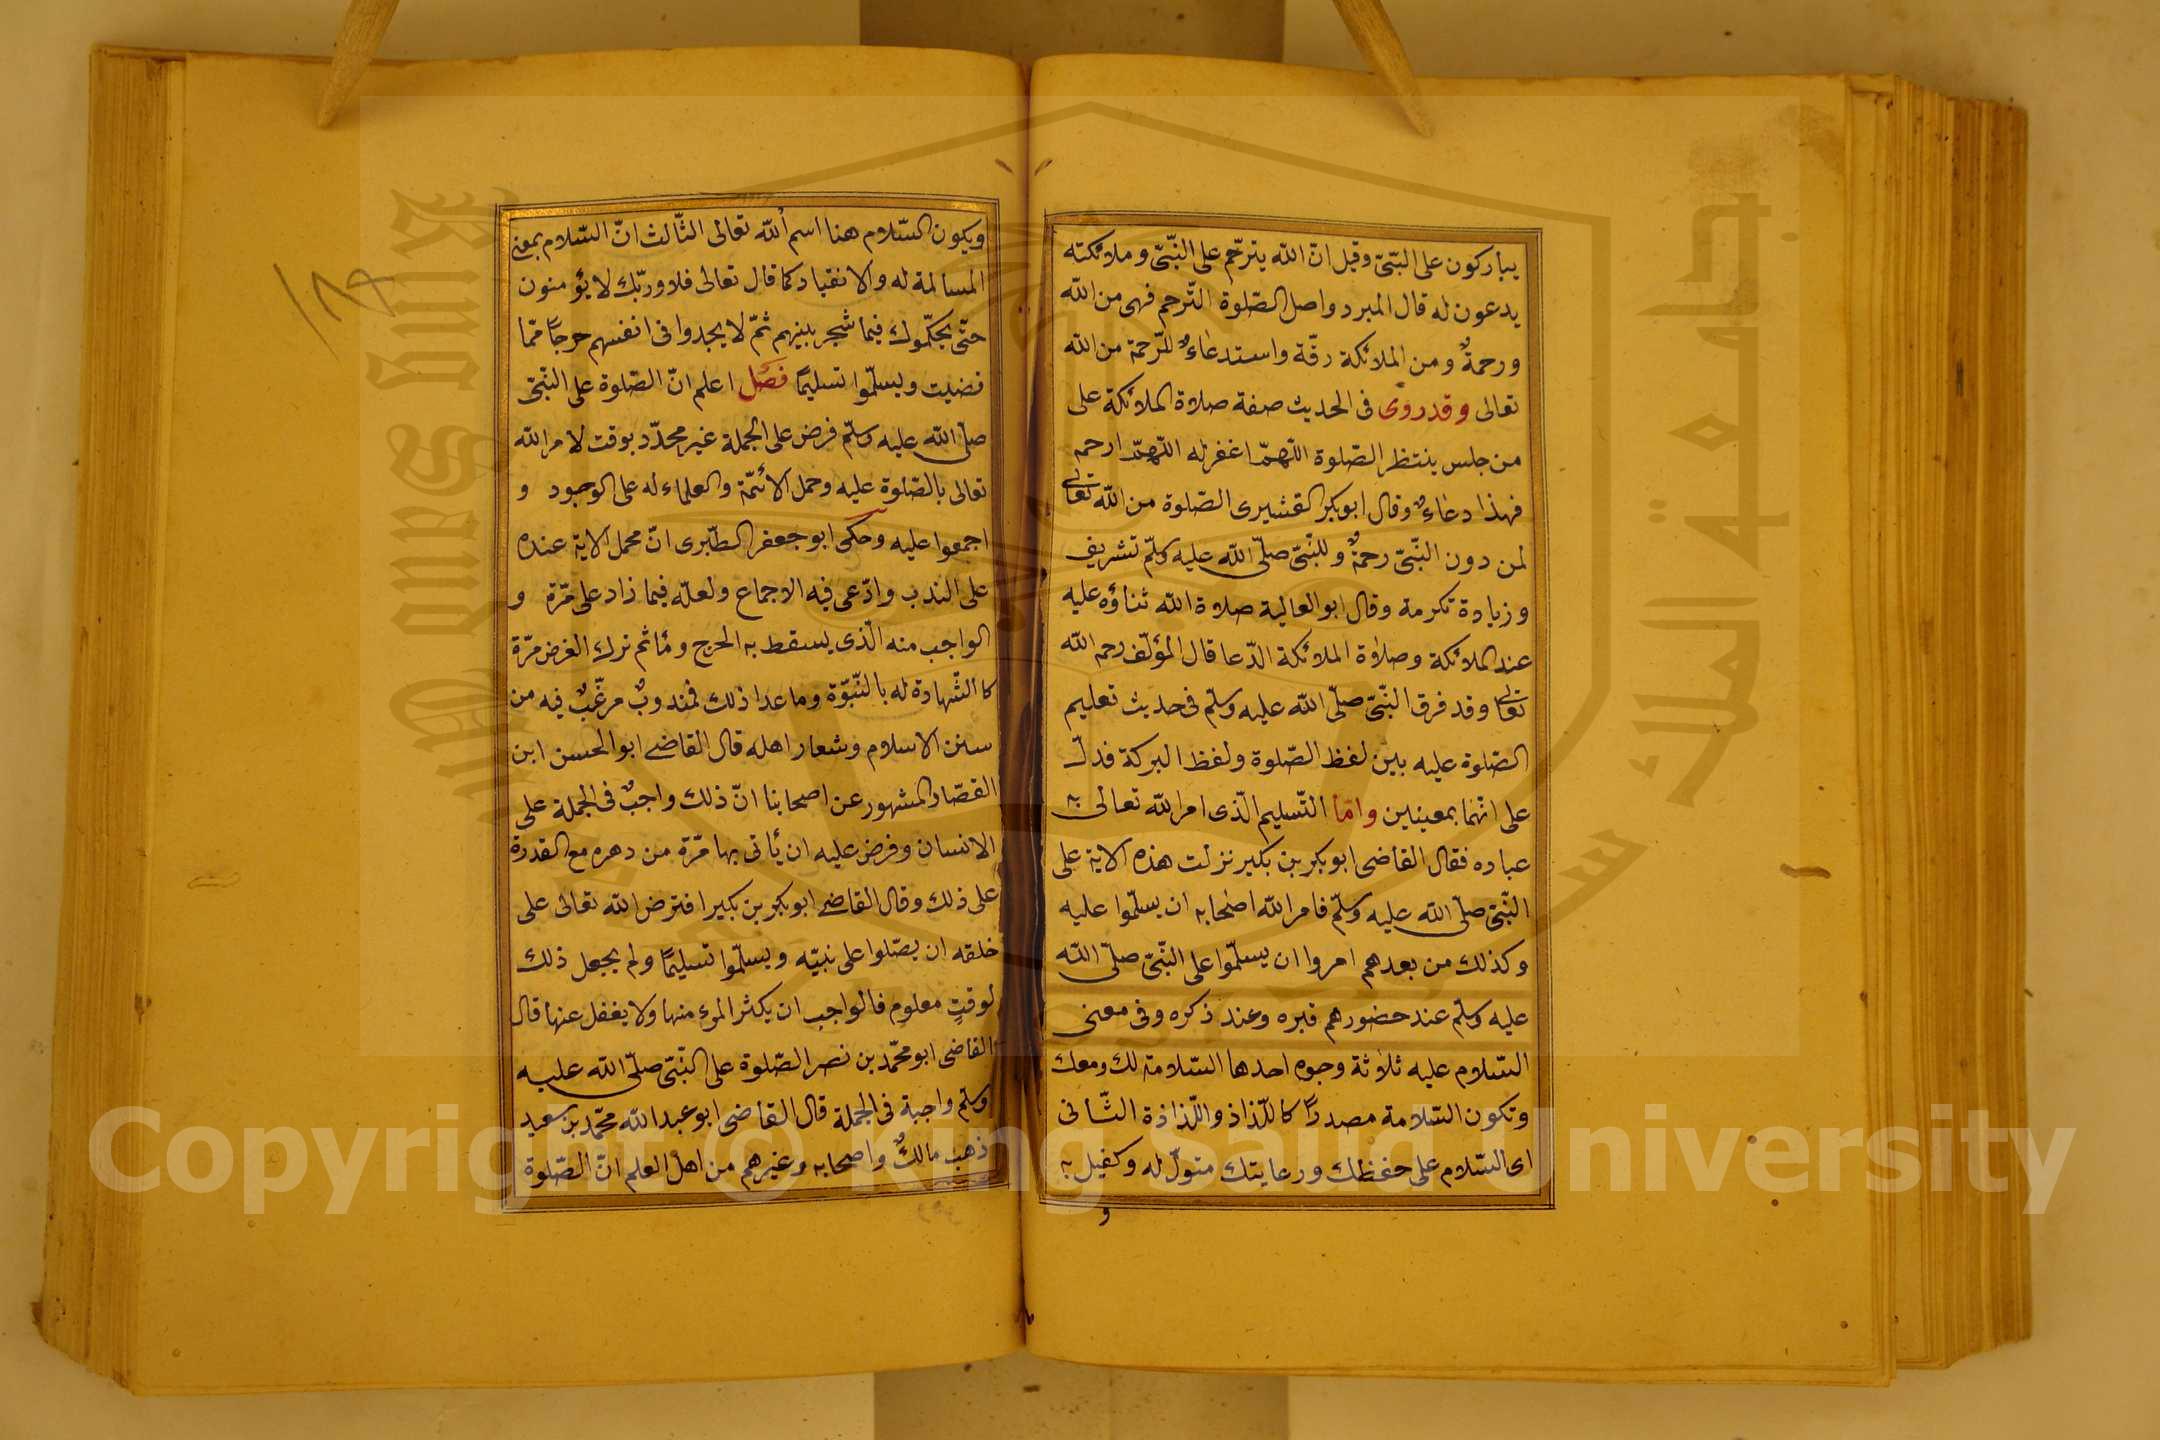 يباركون على النّبيّ وقيل انّ الله يترحّم على النّبيّ و ملائكته
يدعون له قال المبرد واصل الصّلوة التّرحم فهى من الله
ورحمةٌ ومن الملائكة رقّة واستدعاءٌ للرّحمة من الله
تعالى وقد روى فى الحديث صفة صلاة الملائكة على
من جلس ينتظر الصّلوة اللّهمّ اغفر له اللّهمّ ارحم
فهذا دعاءٌ وقال ابو بكر القشيرى الصّلوة من الله تعالى
لمن دون النّبيّ رحمةٌ وللنّبيّ صلّى الله عليه وسلّم تشريف
وزيادة تكرمة وقال ابو العالية صلاة الله ثناؤه عليه
عند الملائكة وصلاة الملائكة الدّعا قال المؤلّف رحم الله
تعالى وقد فرق النّبيّ صلّى الله عليه وسلّم فى حديث تعليم
الصّلوة عليه بين لفظ الصّلوة ولفظ البركة فدلّ
على انّهما بمعينين وامّا التّسليم الّذى امر الله تعالى به
عباده فقال القاضى ابو بكر بن بكير نزلت هذه الاية على
النّبيّ صلّى الله عليه وسلّم فامر الله اصحابه ان يسلّموا عليه
وكذلك من بعدهم امروا ان يسلّموا على النّبيّ صلّى الله
عليه وسلّم عند حضورهم قبره وعند ذكره وفى معنى
السّلام عليه ثلاثة وجوه احدها السّلامة لك ومعك
وتكون السّلامة مصدرًا كاللّذاذ واللّذاذة الثّانى
اى السّلام على حفظك ورعايتك متولّ له وكفيل به
و
١٨٩
ويكون السّلام هنا اسم الله تعالى الثّالث انّ السّلام بمعنى
المسالمة له والانقياد كما قال تعالى فلا وربّك لا يؤمنون
حتّى يحكّموك فيما شجر بينهم ثمّ لا يجدوا فى انفسهم حرجًا ممّا
قضيت ويسلّموا تسليمًا فصل اعلم انّ الصّلوة على النّبيّ
صلّى الله عليه وسلّم فرض على الجملة غير محدّد بوقت لامر الله
تعالى بالصّلوة عليه وحمل الائمّة والعلماء له على الوجوب و
اجمعوا عليه وحكى ابو جعفر الطّبرى انّ محمل الاية عنده
على الندب وادّعى فيه الاجماع ولعلّه فيما زاد على مرّة و
الواجب منه الّذى يسقط به الحرج ومأثم ترك الفرض مرّة
كالشّهادة له بالنّبوّة وما عدا ذلك فمندوبٌ مرغّبٌ فيه من
سنن الاسلام وشعار اهله قال القاضى ابو الحسن ابن
القصّار المشهور عن اصحابنا انّ ذلك واجبٌ فى الجملة على
الانسان وفرض عليه ان يأتى بها مرّة من دهره مع القدرة
على ذلك وقال القاضى ابو بكر بن بكير افترض الله تعالى على
خلقه ان يصلّوا على نبيّه ويسلّموا تسليمًا ولم يجعل ذلك
لوقتٍ معلوم فالواجب ان يكثر المرء منها ولا يغفل عنها قال
القاضى ابو محمّد بن نصر الصّلوة على النّبيّ صلّى الله عليه
وسلّم واجبة فى الجملة قال القاضى ابو عبد الله محمّد بن سعيد
ذهب مالكٌ واصحابه وغيرهم من اهل العلم انّ الصّلوة
King Saud University
جامعة الملك سعود
Copyright © King Saud University